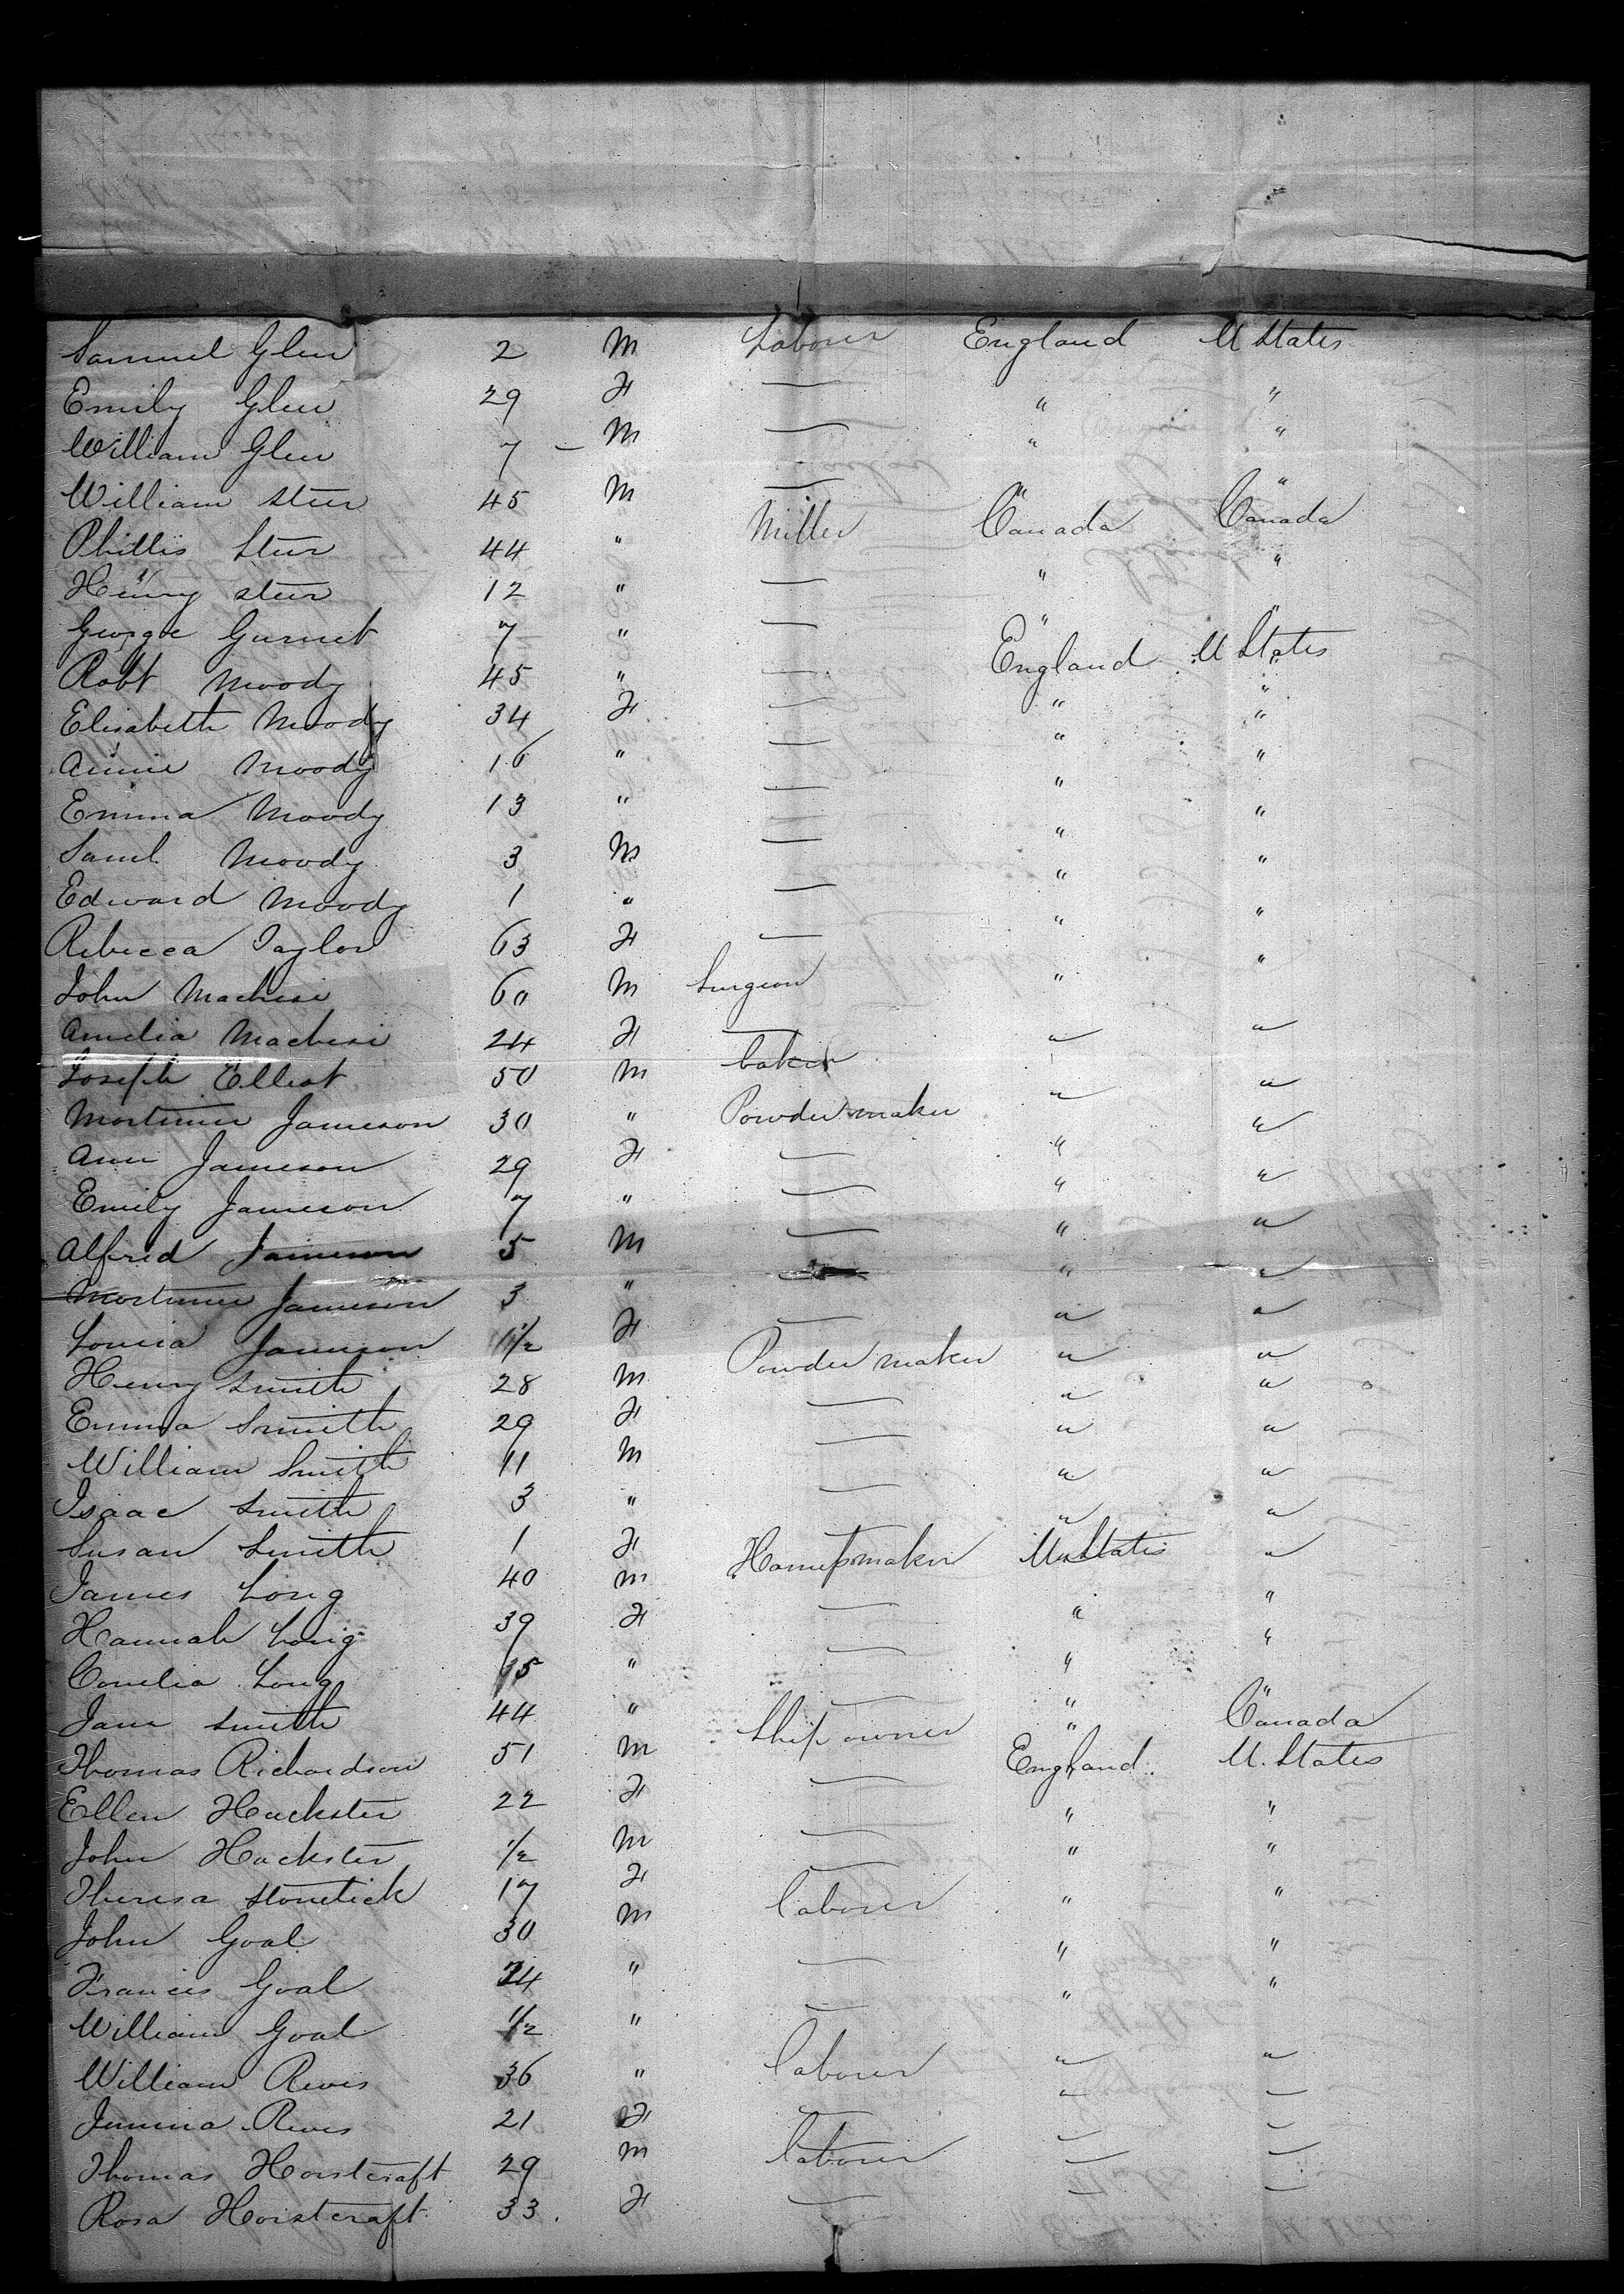 Samuel Glen 2 M Laborer England U States
Emily Glen 29 F — " "
William Glen 7 — M — " "
William Steer 45 M — " "
Phillis Steer 44 " Miller Canada Canada
Henry Steer 12 " — " "
George Gurnet 7 " — " "
Robt Moody 45 " — England U States
Elisabeth Moody 34 F — " "
Annie Moody 16 " — " "
Emma Moody 13 " — " "
Saml. Moody 3 M — " "
Edward Moody 1 " — " "
Rebecca Taylor 63 F — " "
John 60 M Surgeon " "
Amelia 24 F — " "
Joseph Elliot 50 M baker " "
Mortimer Jameson 30 " Powder maker " "
Ann Jameson 29 F — " "
Emily Jameson 7 " — " "
Alfred Jameson 5 M — " "
Mortimer Jameson 3 " — " "
Louisa Jameson 1½ F — " "
Henry Smith 28 M Powder maker " "
Emma Smith 29 F — " "
William Smith 11 M — " "
Isaac Smith 3 " — " "
Susan Smith 1 F — " "
James Long 40 M Harnessmaker U States "
Hannah Long 39 F — " "
Conelia Long 15 " — " "
Jane Smith 44 " — " "
Thomas Richardson 51 M Ship owner " Canada
Ellen Huckster 22 F — England U. States
John Huckster ½ M — " "
Theresa 17 F — " "
John Goal 30 M laborer " "
Francis Goal 24 " — " "
William Goal ½ " — " "
William Rives 36 " laborer " "
Jemima Rives 21 F — " "
Thomas Horstcraft 29 M laborer " "
Rosa Horstcraft 33. F — " "